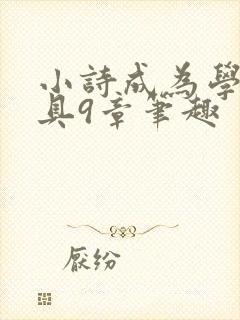 小詩成為學
具9章筆趣
厭纷